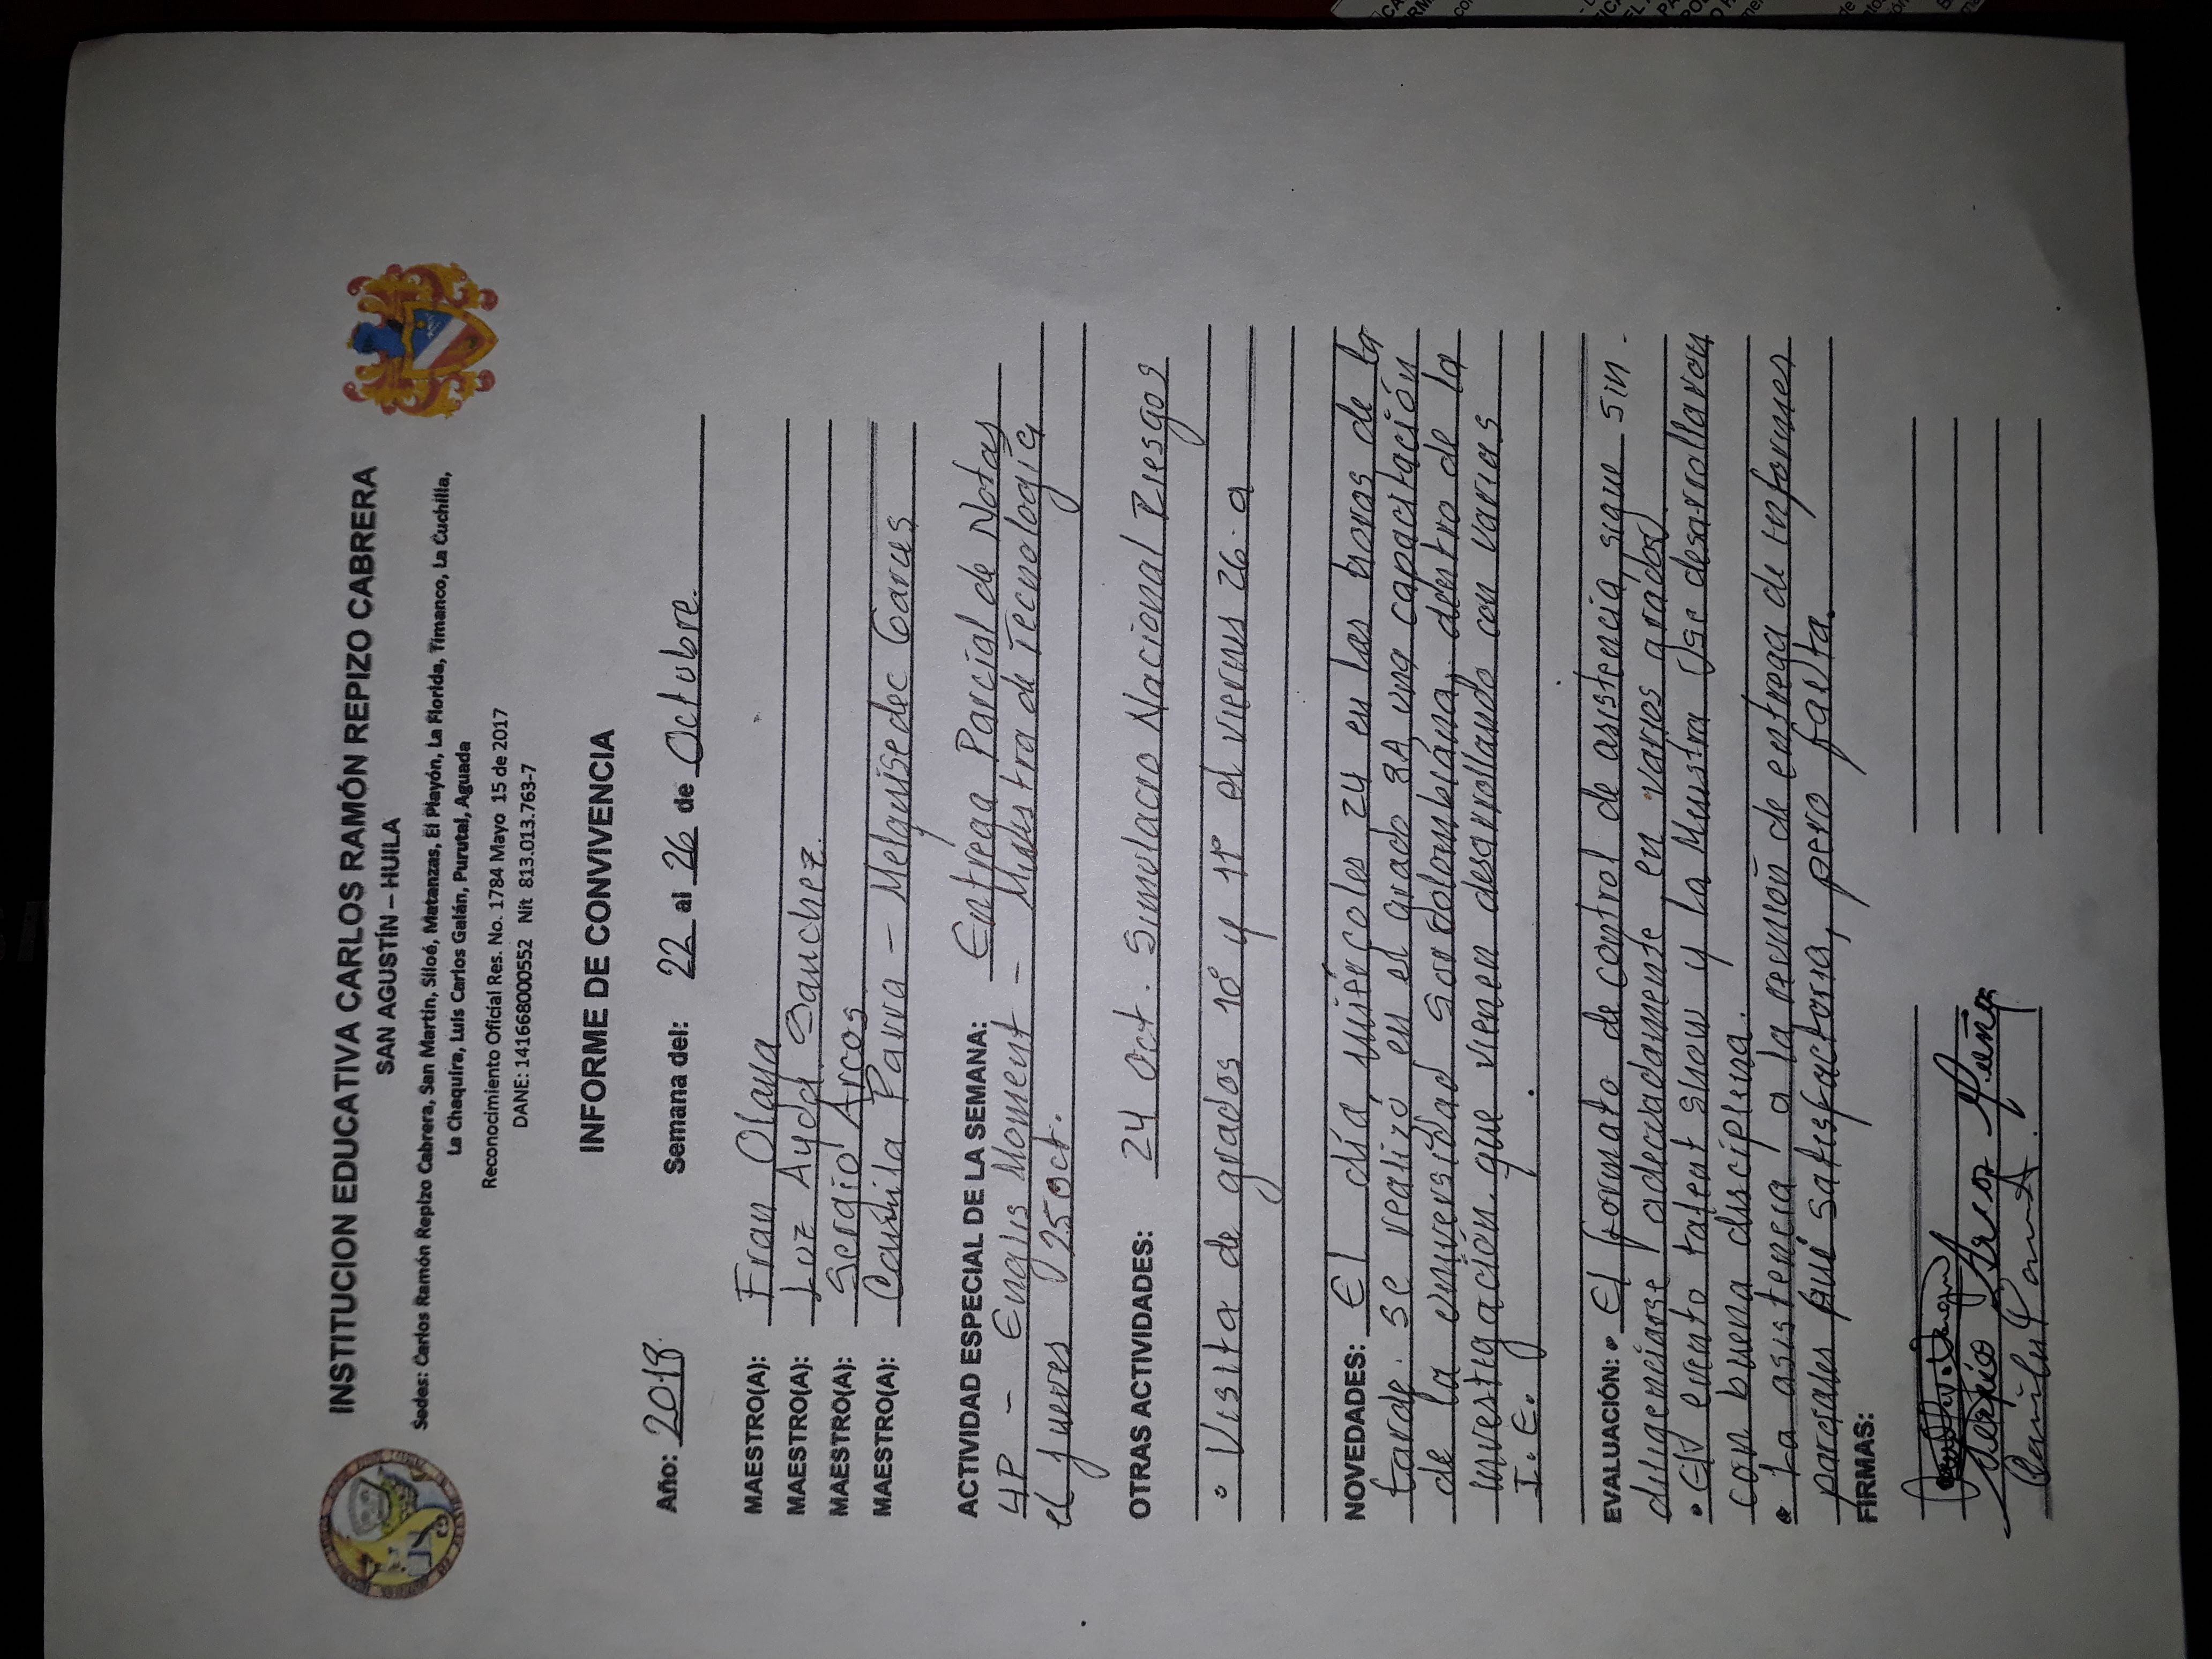 INSTITUCION EDUCATIVA CARLOS RAMÓN REPIZO CABRERA
SAN AGUSTÍN – HUILA
Sedes: Carlos Ramón Repizo Cabrera, San Martin, Siloé, Matanzas, El Playón, La Florida, Timanco, La Cuchilla,
La Chaquira, Luis Carlos Galán, Purutal, Aguada
Reconocimiento Oficial Res. No. 1784 Mayo 15 de 2017
DANE: 141668000552 Nit 813.013.763-7
INFORME DE CONVIVENCIA
Año: 2018. Semana del: 22 al 26 de Octubre.
MAESTRO(A): Fran Olaya
MAESTRO(A): Luz Ayda Sanchez.
MAESTRO(A): Sergio Arcos
MAESTRO(A): Camila Parra – Melquisedec
ACTIVIDAD ESPECIAL DE LA SEMANA: Entrega Parcial de Notas
4P – Englis Moment – Muestra de Tecnología
el jueves 25 oct.
OTRAS ACTIVIDADES: 24 Oct. Simulacro Nacional Riesgos
• Visita de grados 10° y 11° el viernes 26. a
NOVEDADES: El día, miércoles 24 en las horas de la
tarde. se realizó en el grado 8A, una capacitación
de la Universidad Surcolombiana, dentro de la
investigación. que vienen desarrollando con varias
I.E.
EVALUACIÓN: • El formato de control de asistencia, sigue sin
diligenciarse adecuadamente en varios grados.
• El evento talent show y la Muestra se desarrollaron
con buena disciplina.
• La asistencia a la reunión de entrega de informes
parciales fue satisfactoria, pero falta.
FIRMAS:
Sergio Arcos Muñoz